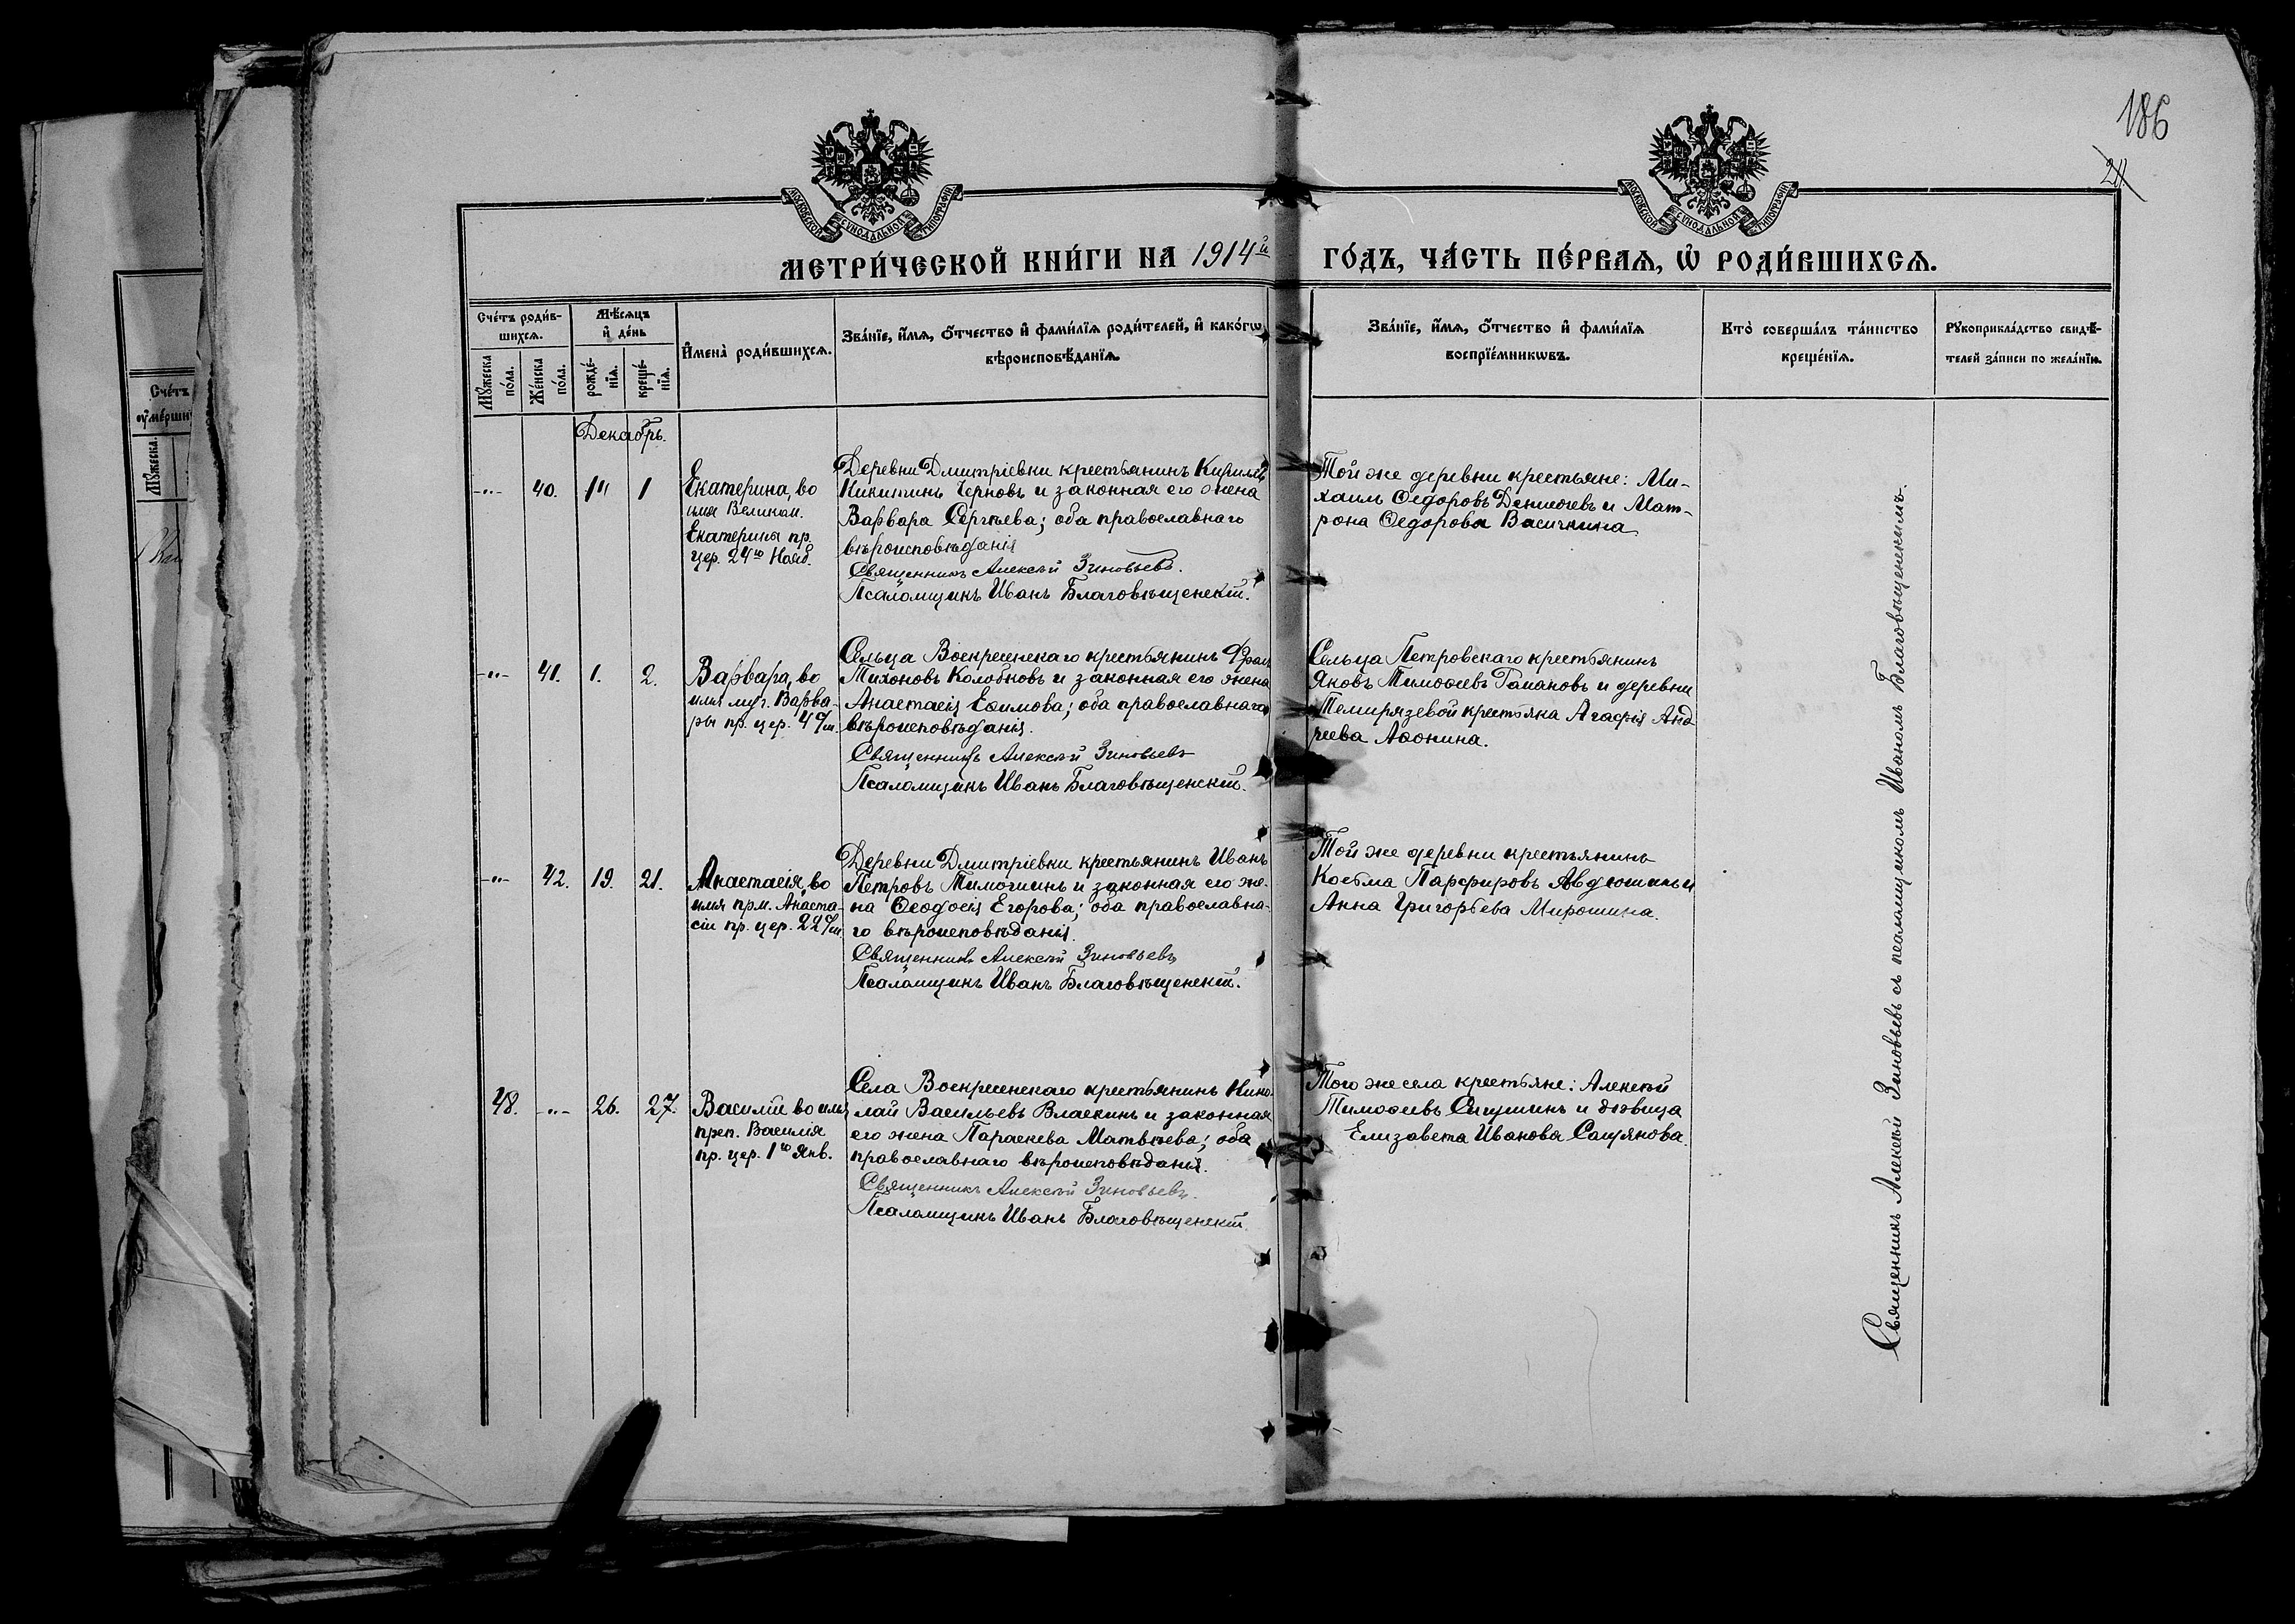 186
211
МОСКОВСКОЙ СѴНОДАЛЬНОЙ ТИПОГРАФІИ
МОСКОВСКОЙ СѴНОДАЛЬНОЙ ТИПОГРАФІИ
МЕТРИ́ЧЕСКОЙ КНИ́ГИ НА 1914й
ГО́ДЪ, ЧА́СТЬ ПЕ́РВАЯ, Ѡ҆ РОДИ́ВШИХСЯ.
Сче́тъ роди́в-
шихся.
Мꙋ́жеска по́ла.
Же́нска по́ла.
Мѣ́сяцъ
и҆ де́нь
рожде́-
нїя.
креще́-
нїя.
И҆мена̀ роди́вшихся.
Зва́нїе, и҆́мя, ѻ҆́тчество и҆ фами́лїя роди́телей, и҆ како́гѡ
вѣроисповѣ́данїя.
Зва́нїе, и҆́мя, ѻ҆́тчество и҆ фами́лїя
воспрїе́мникѡвъ.
Кто̀ соверша́лъ та́инство
креще́нїя.
Рꙋкоприкла́дство свидѣ́-
телей за́писи по жела́нїю.
Сче́тъ
ᲂу҆ме́рши
Мꙋ́жеска
Декабрь.
-"- 40. 1 1
Екатерина, во
имя Великом.
Екатерины пр.
цер. 24го Нояб.
Деревни Дмитріевки крестьянинъ Кириллъ
Никитинъ Черновъ и законная его жена
Варвара Сергѣева; оба православнаго
вѣроисповѣданія
Священникъ Алексѣй Зиновьевъ.
Псаломщикъ Иванъ Благовѣщенскій.
Той же деревни крестьяне: Ми-
хаилъ Ѳедоровъ и Мат-
рона Ѳедорова Васичкина
-"- 41. 1. 2.
Варвара, во
имя муч. Варва-
ры пр. цер. 4
Сельца Воскресенскаго крестьянинъ
Тихоновъ Колобковъ и законная его жена
Анастасія Еѳимова; оба православнаго
вѣроисповѣданія.
Священникъ Алексѣй Зиновьевъ
Псаломщикъ Иванъ Благовѣщенскій.
Сельца Петровскаго крестьянинъ
Яковъ Тимоѳеевъ и деревни
Темирязевой крестьянка Агафія Анд
реева Аѳонина.
-"- 42. 19. 21.
Анастасія, во
имя прм. Анаста-
сіи пр. цер. 22
Деревни Дмитріевки крестьянинъ Иванъ
Петровъ Тимошинъ и законная его же-
на Ѳеодосія Егорова; оба православна-
го вѣроисповѣданія.
Священникъ Алексѣй Зиновьевъ
Псаломщикъ Иванъ Благовѣщенскій.
Той же деревни крестьянинъ
Косьма Парфировъ Авдюшинъ и
Анна Григорьева Мирошина.
48. -"- 26. 27.
Василій во имя
преп. Василія
пр. цер. 1го Янв.
Села Воскресенскаго крестьянинъ Нико-
лай Васильевъ Власкинъ и законная
его жена Параскева Матвѣева; оба
православнаго вѣроисповѣданія.
Священникъ Алексѣй Зиновьевъ.
Псаломщикъ Иванъ Благовѣщенскій
Того же села крестьяне: Алексѣй
Тимоѳеевъ и дѣвица
Елизавета Иванова
Священникъ Алексѣй Зиновьевъ съ псаломщикомъ Иваномъ Благовѣщенскимъ.